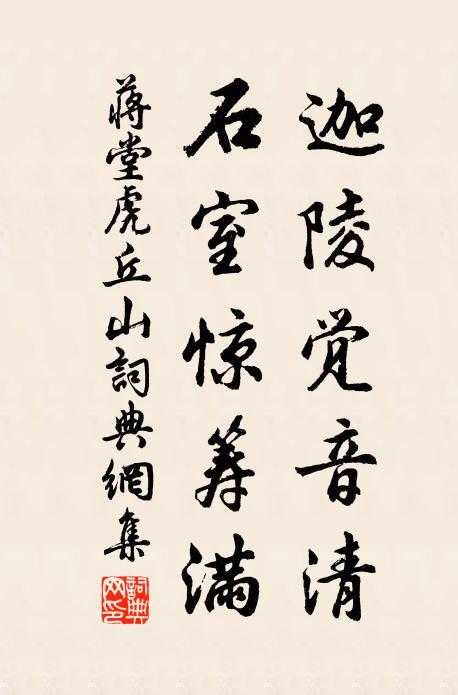 迦陵觉音清
石室惊筹满
蒋堂虎丘山詞典網集
詞典网印